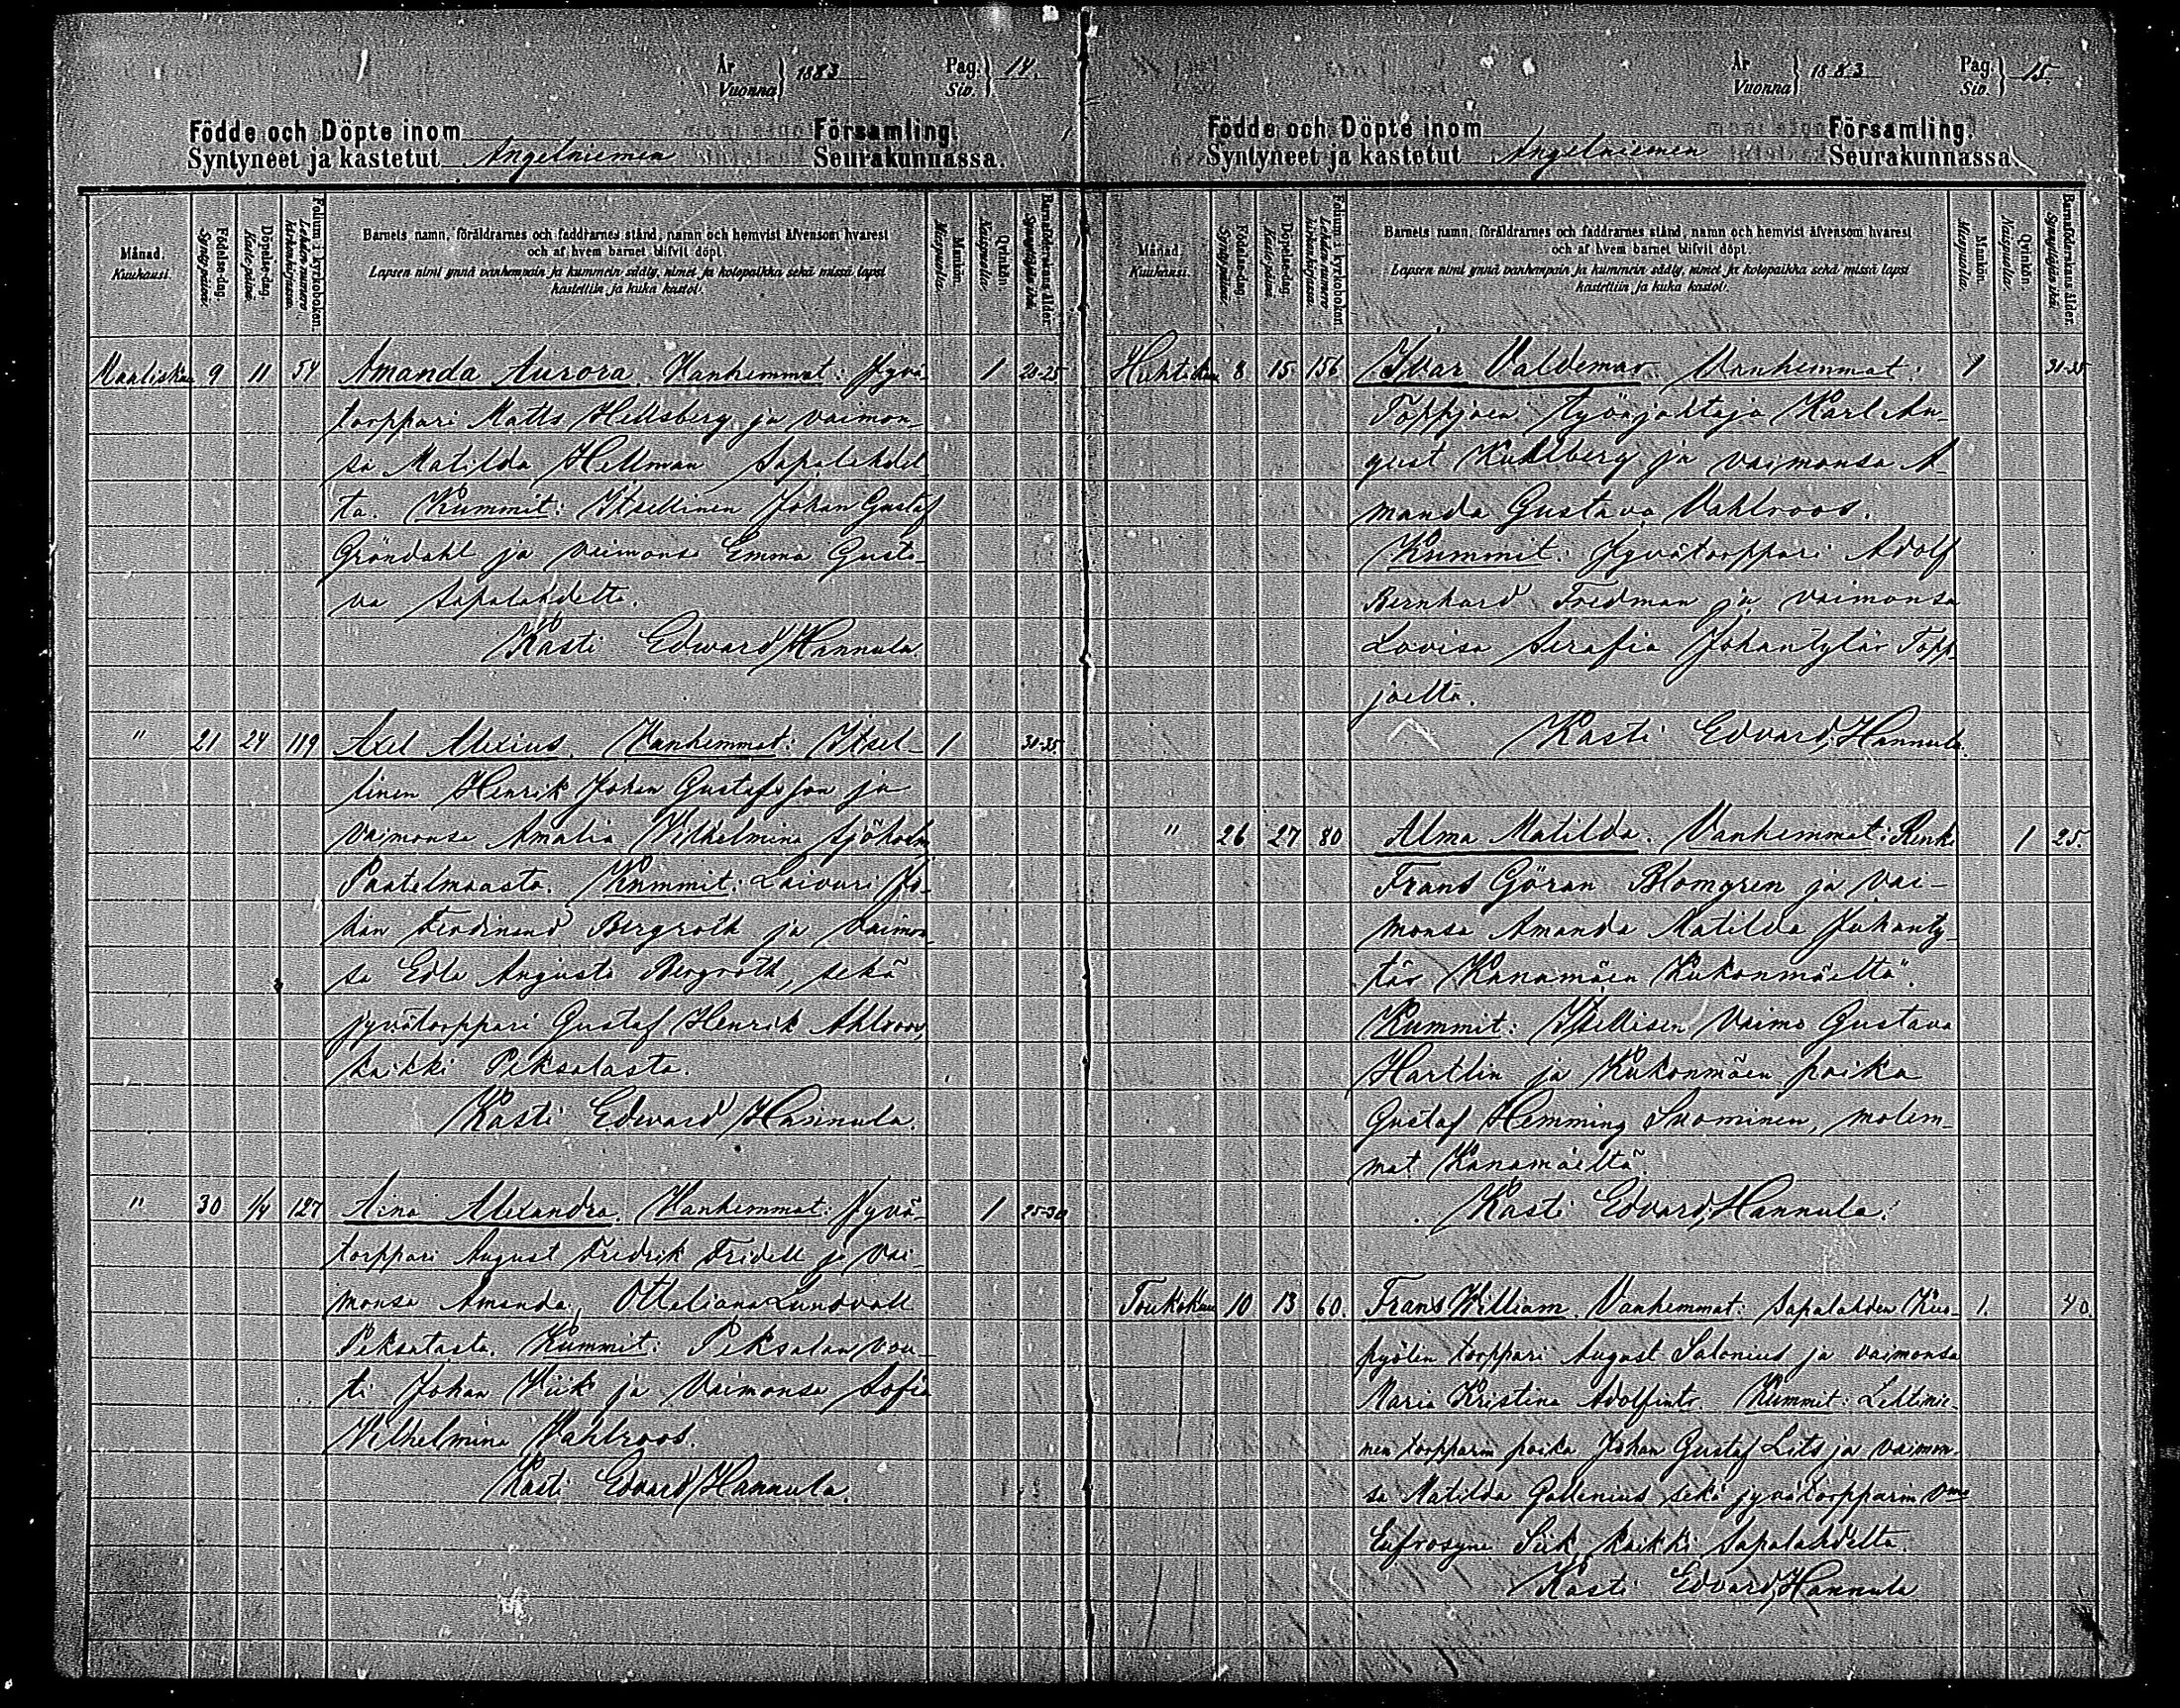 År Vuonna } 1883 Pag. Siv. } 14.
Födde och Döpte inom Församling.
Syntyneet ja kastetut Angelniemen Seurakunnassa.
Månad. Kuukausi.
Födelse-dag. Syntypäivä.
Döpelse-dag. Kaste-päivä.
Folium i kyrkoboken. Lehden numero kirkonkirjassa.
Barnets namn, föräldrarnes och faddrarnes stånd, namn och hemvist äfvensom hvarest
och af hvem barnet blifvit döpt.
Lapsen nimi ynnä vanhempain ja kummein sääty, nimet ja kotopaikka sekä missä lapsi
kastettiin ja kuka kastoi.
Mankön. Miespuolia.
Qvinkön. Naispuolia.
Barnaföderskans ålder. Synnyttäjän ikä.
Maalisku 9 11 54 Amanda Aurora. Vanhemmat: Jyvä- 1 20-25
torppari Matts Hellsberg ja vaimon-
sa Matilda Hellman Sapalahdel-
ta. Kummit: Itsellinen Johan Gustaf
Gröndahl ja vaimonsa Emma Gusta-
va Sapalahdelta.
Kasti Edward Hannula.
" 21 24 119 Axel Alexius. Vanhemmat: Itsel- 1 30-35
linen Henrik Johan Gustafsson ja
vaimonsa Amalia Wilhelmina Sjöholm
Paatelmaasta. Kummit: Laivuri Jo-
han Ferdinand Bergroth ja vaimon-
sa Edla Augusta Bergroth, sekä
jyvätorppari Gustaf Henrik Ahlroos,
kaikki Peksalasta.
Kasti Edward Hannula.
" 30 1/4 127 Aina Alexandra. Vanhemmat: Jyvä- 1 25-30
torppari August Fredrik Fridell ja vai-
monsa Amanda Ottaliana Lundvall
Peksalasta. Kummit: Peksalan vou-
ti Johan Wiik ja vaimonsa Sofia
Wilhelmina Vahlroos.
Kasti Edvard Hannula.
År Vuonna } 1883 Pag. Siv. } 15.
Födde och Döpte inom Församling.
Syntyneet ja kastetut Angelniemen Seurakunnassa.
Månad. Kuukausi.
Födelse-dag. Syntypäivä.
Döpelse-dag. Kaste-päivä.
Folium i kyrkoboken. Lehden numero kirkonkirjassa.
Barnets namn, föräldrarnes och faddrarnes stånd, namn och hemvist äfvensom hvarest
och af hvem barnet blifvit döpt.
Lapsen nimi ynnä vanhempain ja kummein sääty, nimet ja kotopaikka sekä missä lapsi
kastettiin ja kuka kastoi.
Mankön. Miespuolia.
Qvinkön. Naispuolia.
Barnaföderskans ålder. Synnyttäjän ikä.
Huhtikuu 8 15 156 Ivar Valdemar. Vanhemmat: 1 30-35
Toppjoen työnjohtaja Karl Au-
gust Kuhlberg ja vaimonsa A-
manda Gustava Vahlroos.
Kummit: Jyvätorppari Adolf
Bernhard Fredman ja vaimonsa
Lovisa Serafia Johantytär Topp-
joelta.
Kasti Edvard Hannula.
" 26 27 80 Alma Matilda. Vanhemmat: Renki 1 25.
Frans Göran Blomgren ja vai-
monsa Amanda Matilda Juhanty-
tär Kanamäen Kukonmäeltä.
Kummit: Itsellisen vaimo Gustava
Hartlin ja Kukonmäen poika
Gustaf Hemming Suominen, molem-
mat Kanamäeltä.
Kasti Edvard Hannula.
Toukokuu 10 13 60. Frans William. Vanhemmat: Sapalahden Kuo- 1. 40.
pyölin torppari August Salonius ja vaimonsa
Maria Kristina Adolfintr. Kummit: Lehtinie-
men torpparin poika Johan Gustaf Lits ja vaimon-
sa Matilda Gallenius sekä jyvätorpparin vmo
Eufrosyne Siik kaikki Sapalahdelta.
Kasti Edvard Hannula